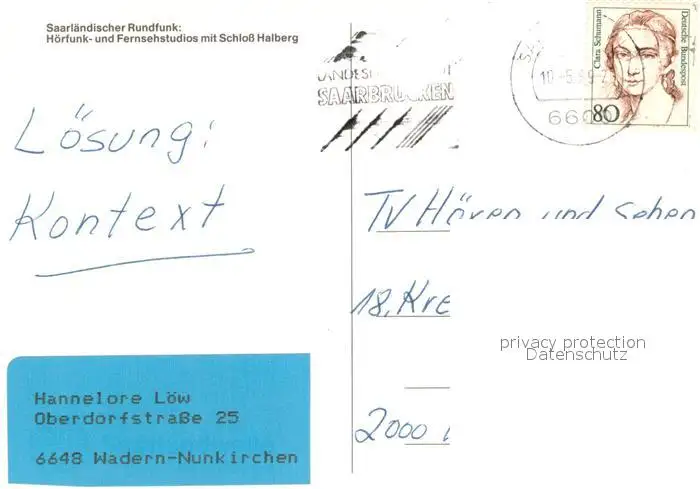 Saarländischer Rundfunk:
Hörfunk- und Fernsehstudios mit Schloß Halberg
SAARBRÜCKEN
Clara Schumann
Deutsche Bundespost
80
Lösung:
Kontext
TV Hören und Sehen
18. Kre
2000
privacy protection
Datenschutz
Hannelore Löw
Oberdorfstraße 25
6648 Wadern-Nunkirchen